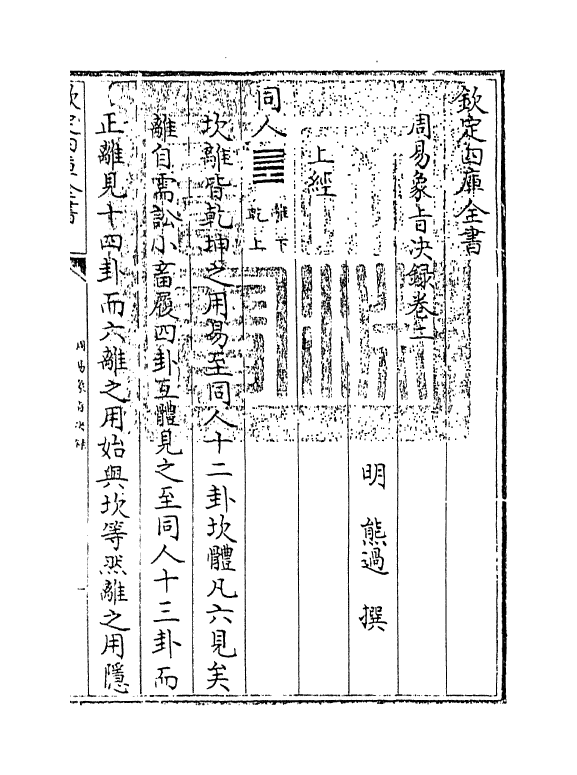 欽定四庫全書
周易象旨决録卷二
明 熊過 撰
上經
同人 ䷌ 離下 乾上
坎離皆乾坤之用易至同人十二卦坎體凡六見矣
離自需訟小畜履四卦互體見之至同人十三卦而
正離見十四卦而六離之用始與坎等然離之用隱
欽定四庫全書
周易象旨决録